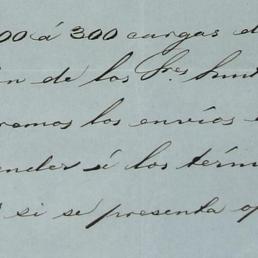 00 á 300 cargas d
n de los Sres
remos los envíos
ender á los térm
si se presenta op